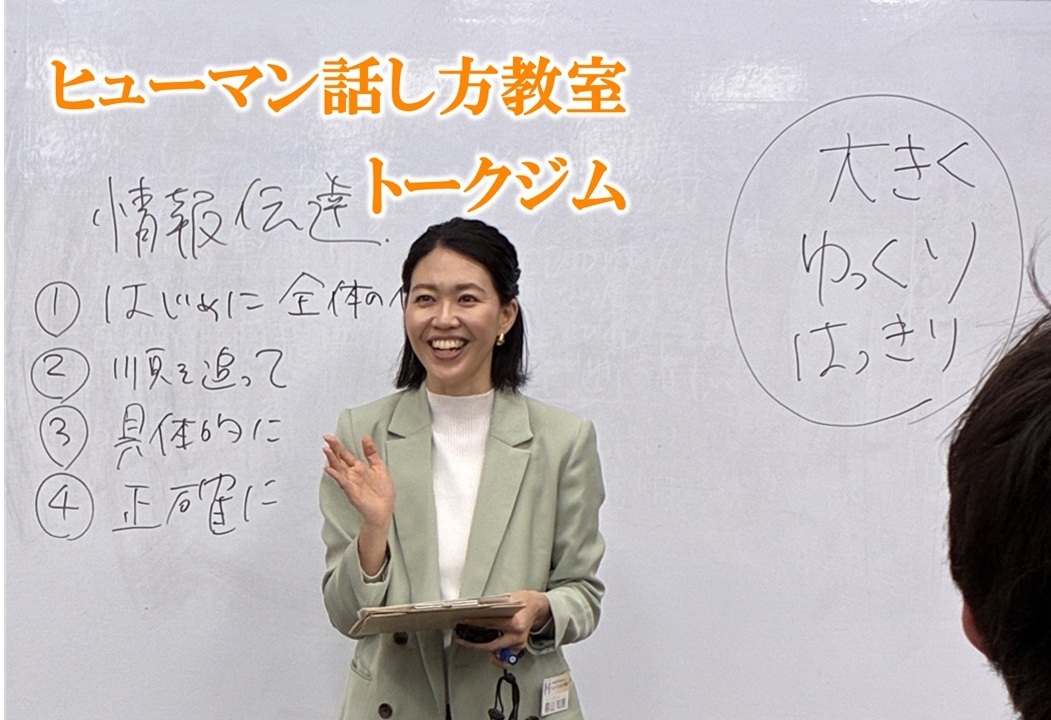 ヒューマン話し方教室
トークジム
情報伝達
① はじめに 全体の
② 順を追って
③ 具体的に
④ 正確に
大きく
ゆっくり
はっきり